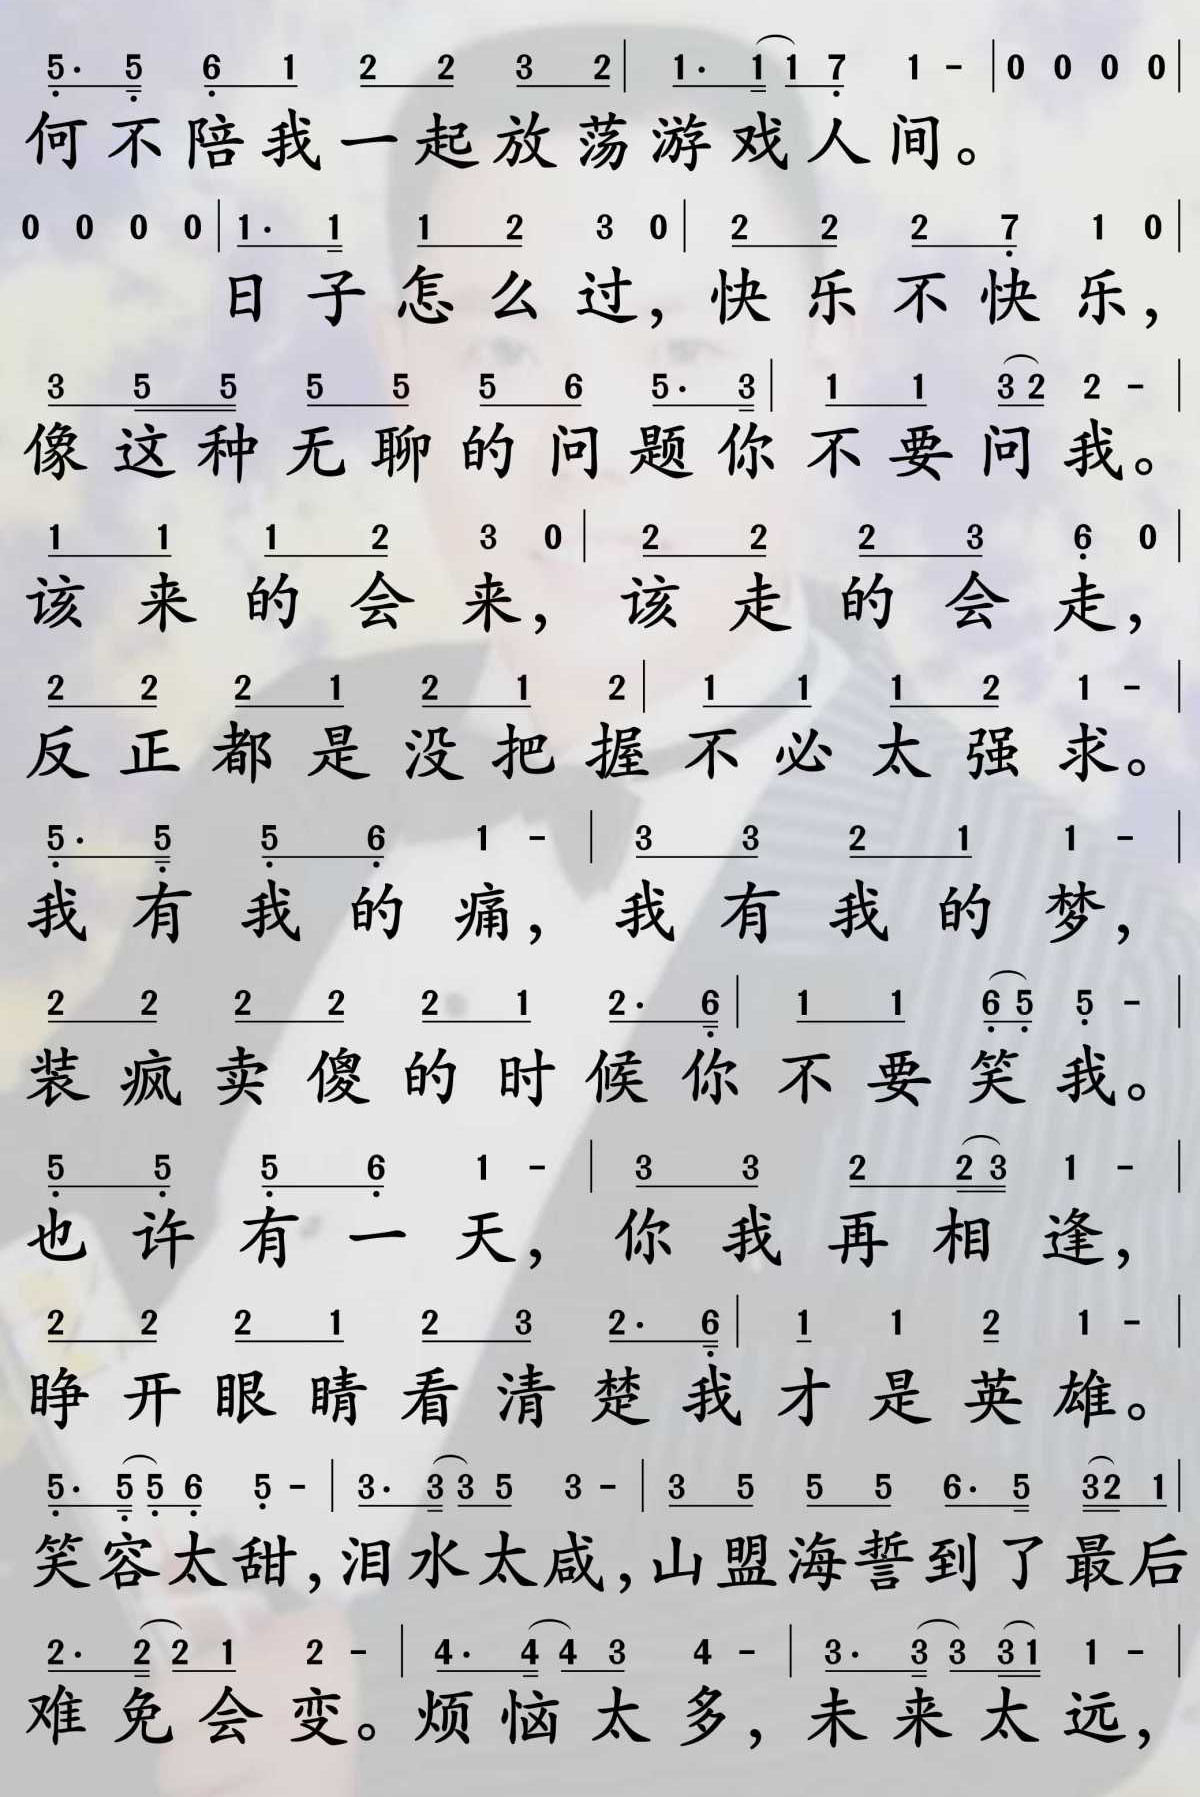 5. 5 6 1 2 2 3 2 | 1. 1 1 7 1 - | 0 0 0 0 |
何不陪我一起放荡游戏人间。
0 0 0 0 | 1. 1 1 2 3 0 | 2 2 2 7 1 0 |
日子怎么过，快乐不快乐，
3 5 5 5 5 5 6 5. 3 | 1 1 3 2 2 - |
像这种无聊的问题你不要问我。
1 1 1 2 3 0 | 2 2 2 3 6 0 |
该来的会来，该走的会走，
2 2 2 1 2 1 2 | 1 1 1 2 1 - |
反正都是没把握不必太强求。
5. 5 5 6 1 - | 3 3 2 1 1 - |
我有我的痛，我有我的梦，
2 2 2 2 2 1 2. 6 | 1 1 6 5 5 - |
装疯卖傻的时候你不要笑我。
5 5 5 6 1 - | 3 3 2 2 3 1 - |
也许有一天，你我再相逢，
2 2 2 1 2 3 2. 6 | 1 1 2 1 - |
睁开眼睛看清楚我才是英雄。
5. 5 5 6 5 - | 3. 3 3 5 3 - | 3 5 5 5 6. 5 3 2 1 |
笑容太甜，泪水太咸，山盟海誓到了最后
2. 2 2 1 2 - | 4. 4 4 3 4 - | 3. 3 3 3 1 1 - |
难免会变。烦恼太多，未来太远，